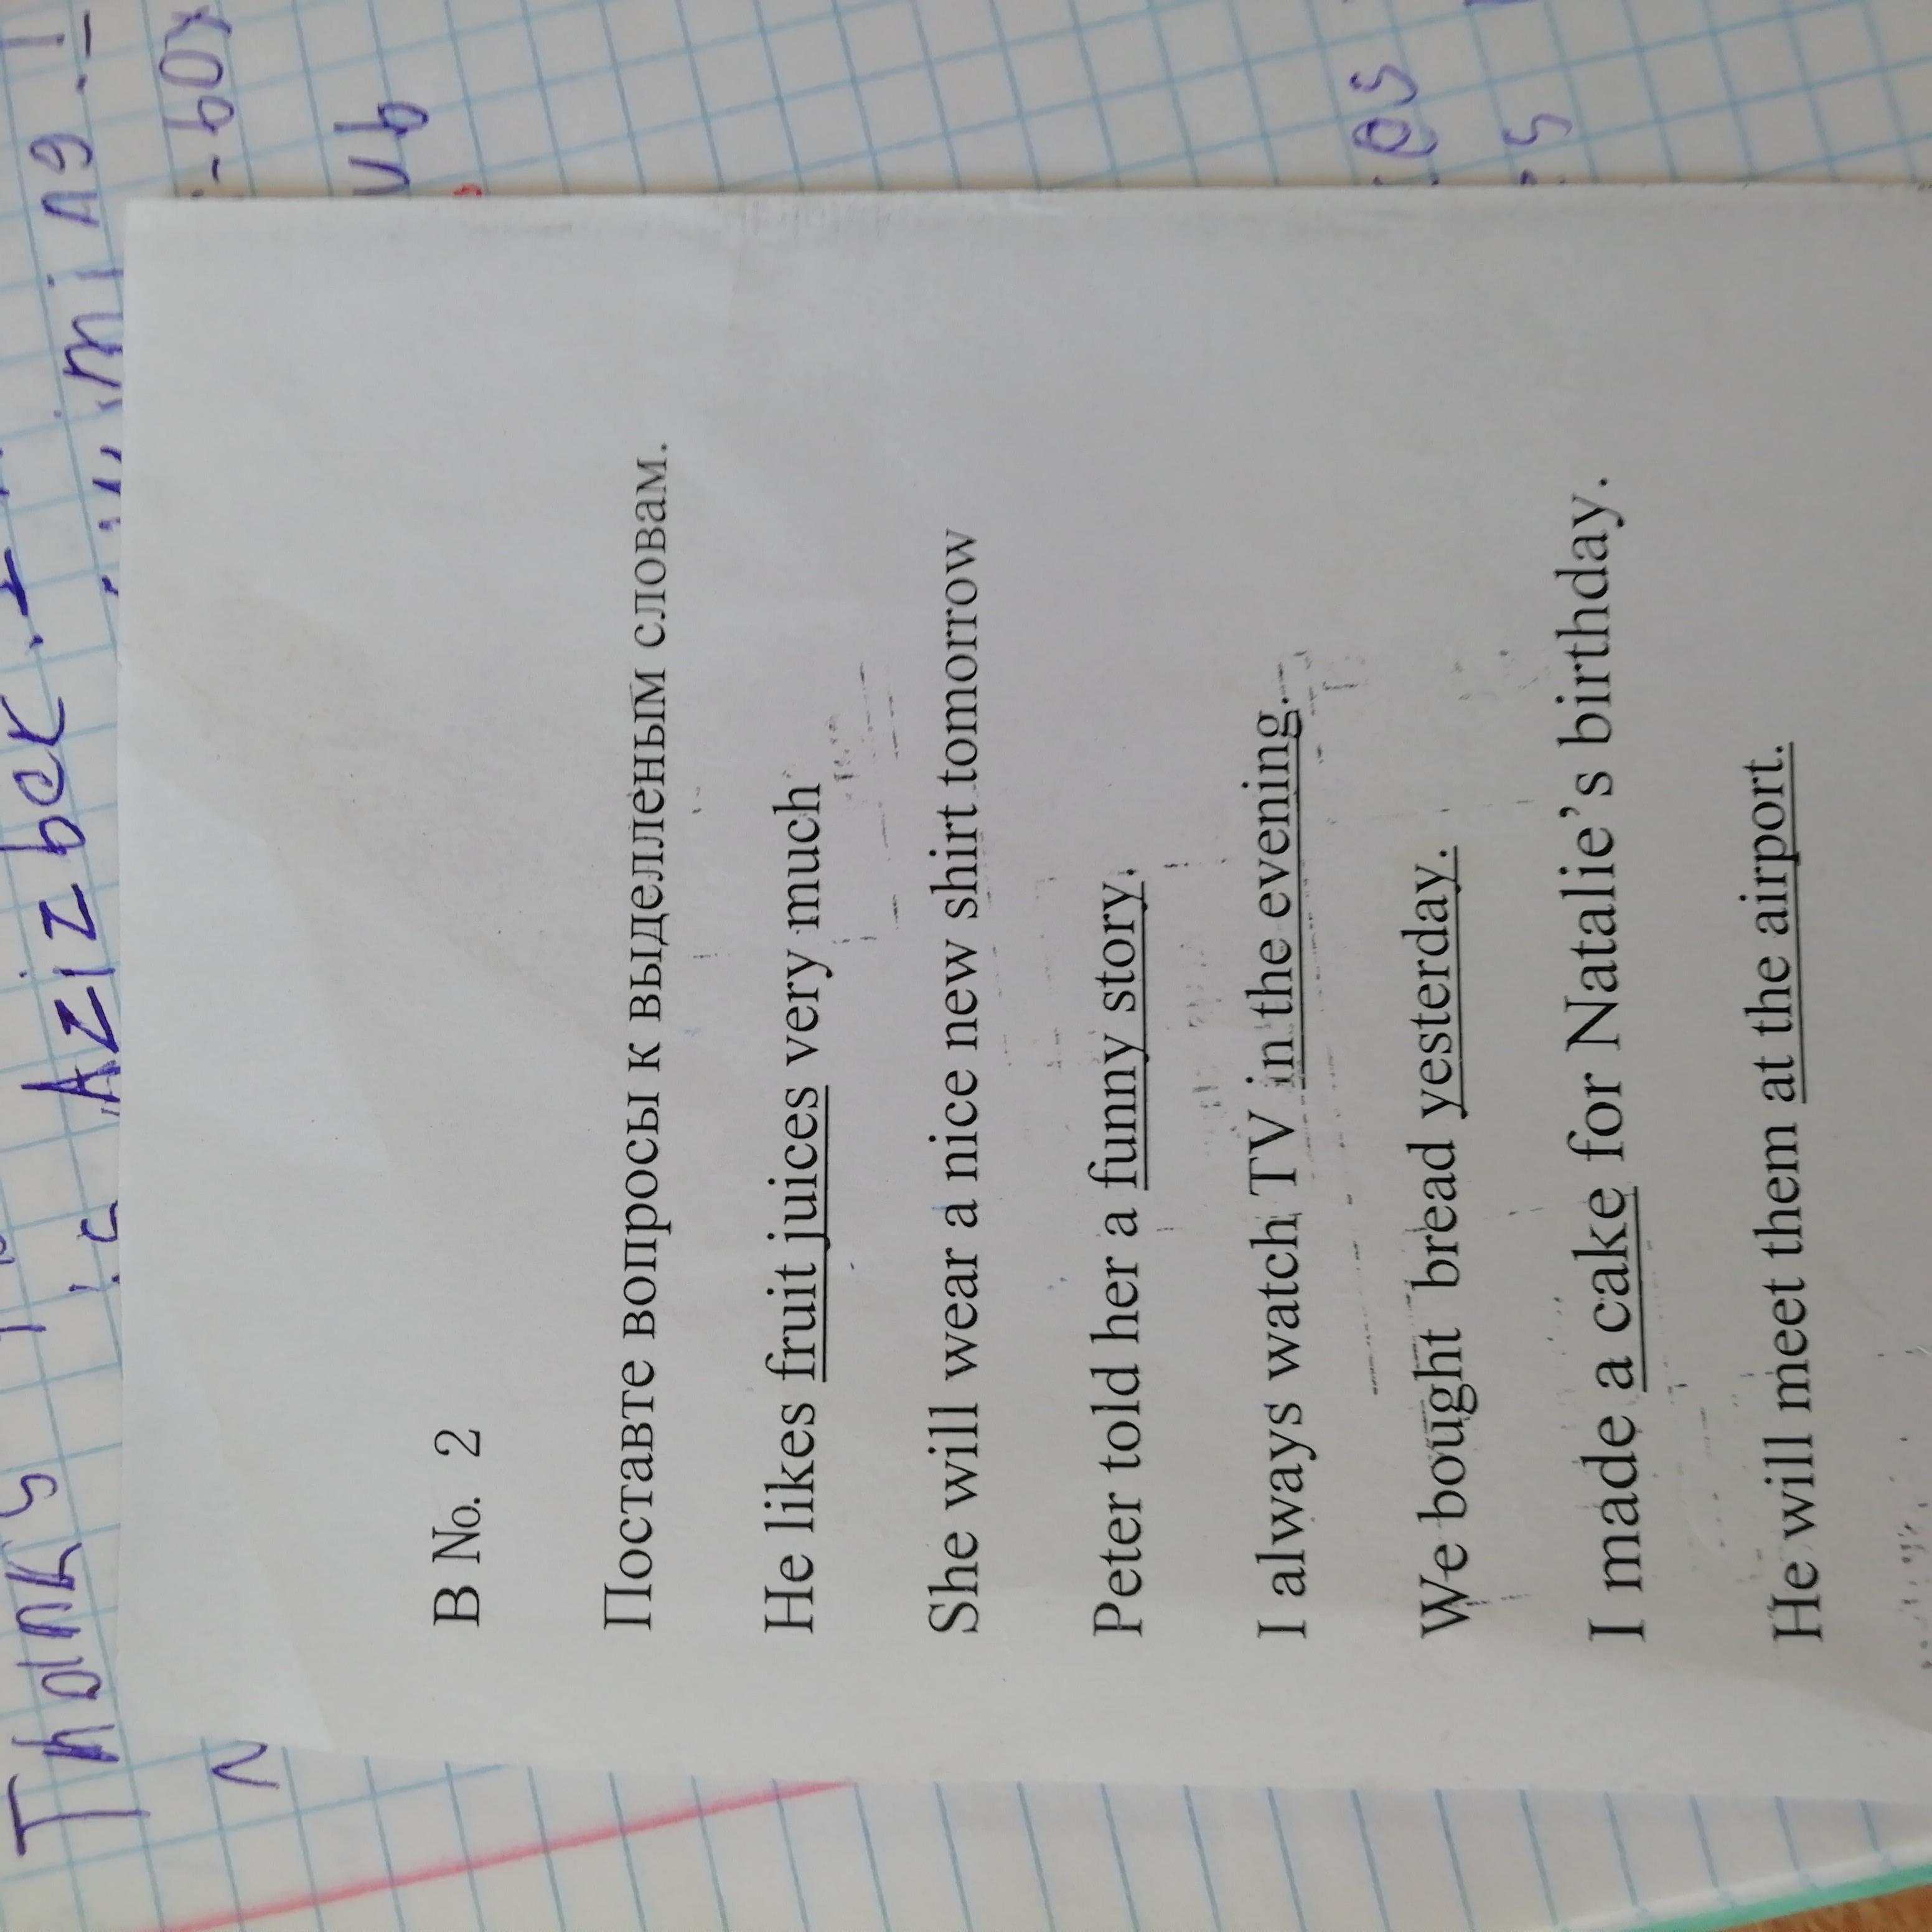 Thanks
Azizbek.
B №. 2
Поставте вопросы к выделленым словам.
He likes fruit juices very much
She will wear a nice new shirt tomorrow
Peter told her a funny story.
I always watch TV in the evening.
We bought bread yesterday.
I made a cake for Natalie's birthday.
He will meet them at the airport.